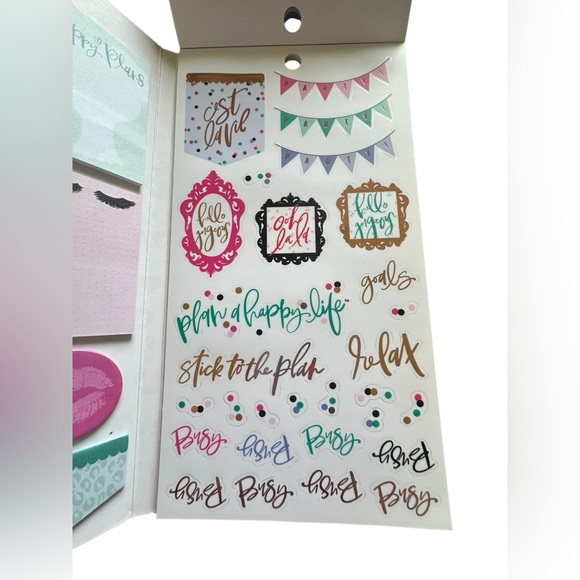 ppy Plans
c'est
la vie
PARTY!
PARTY!
PARTY!
hello
ooh
la la
hello
goals
plan a happy life™
stick to the plan
relax
Busy Busy Busy Busy
Busy Busy Busy Busy